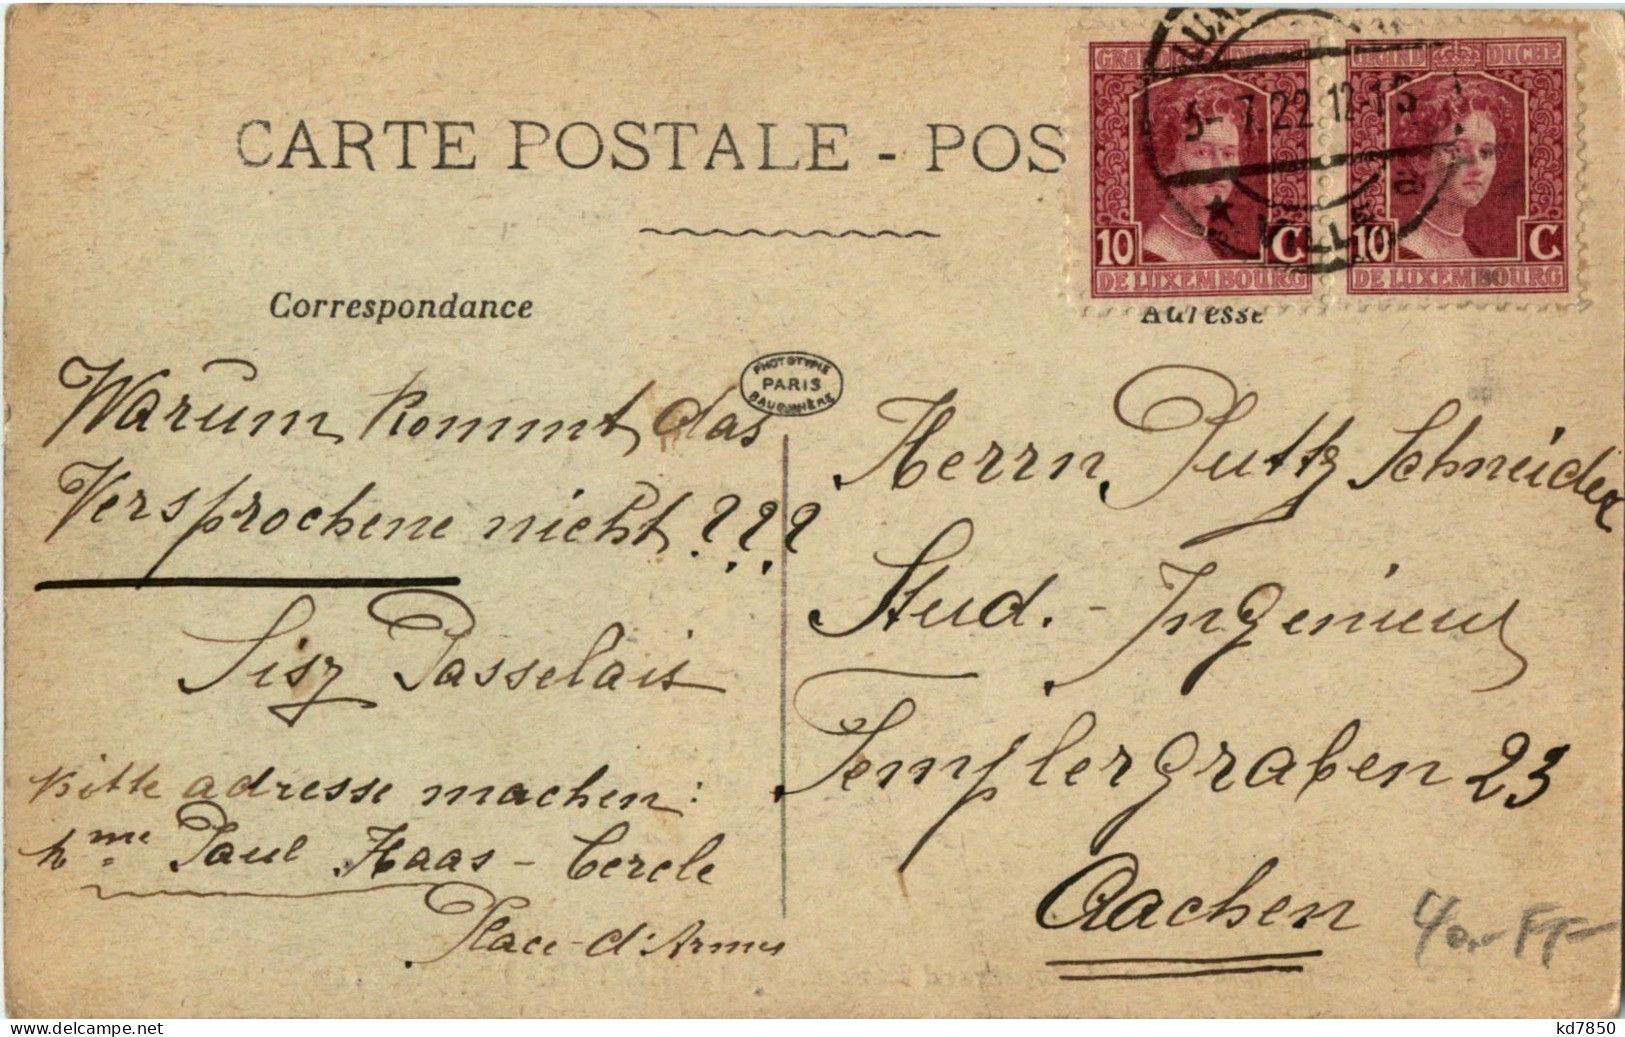 CARTE POSTALE - POS
GRAND DUCHÉ
5-7.22.12-1S
a
VILLE
10 C
DE LUXEMBOURG
GRAND DUCHÉ
10 C
DE LUXEMBOURG
Correspondance
Adresse
PHOTOTYPIE
PARIS
BAUDINIÈRE
Warum kommt das
Versprochene nicht???
Sisz Passelais
bitte adresse machen:
Mme Paul Haas - Cercle
Place-d'Armes
Herrn Putty Schneider
Stud. - Ingenieur
Templergraben 23
Aachen
40.- FF-
www.delcampe.net
kd7850